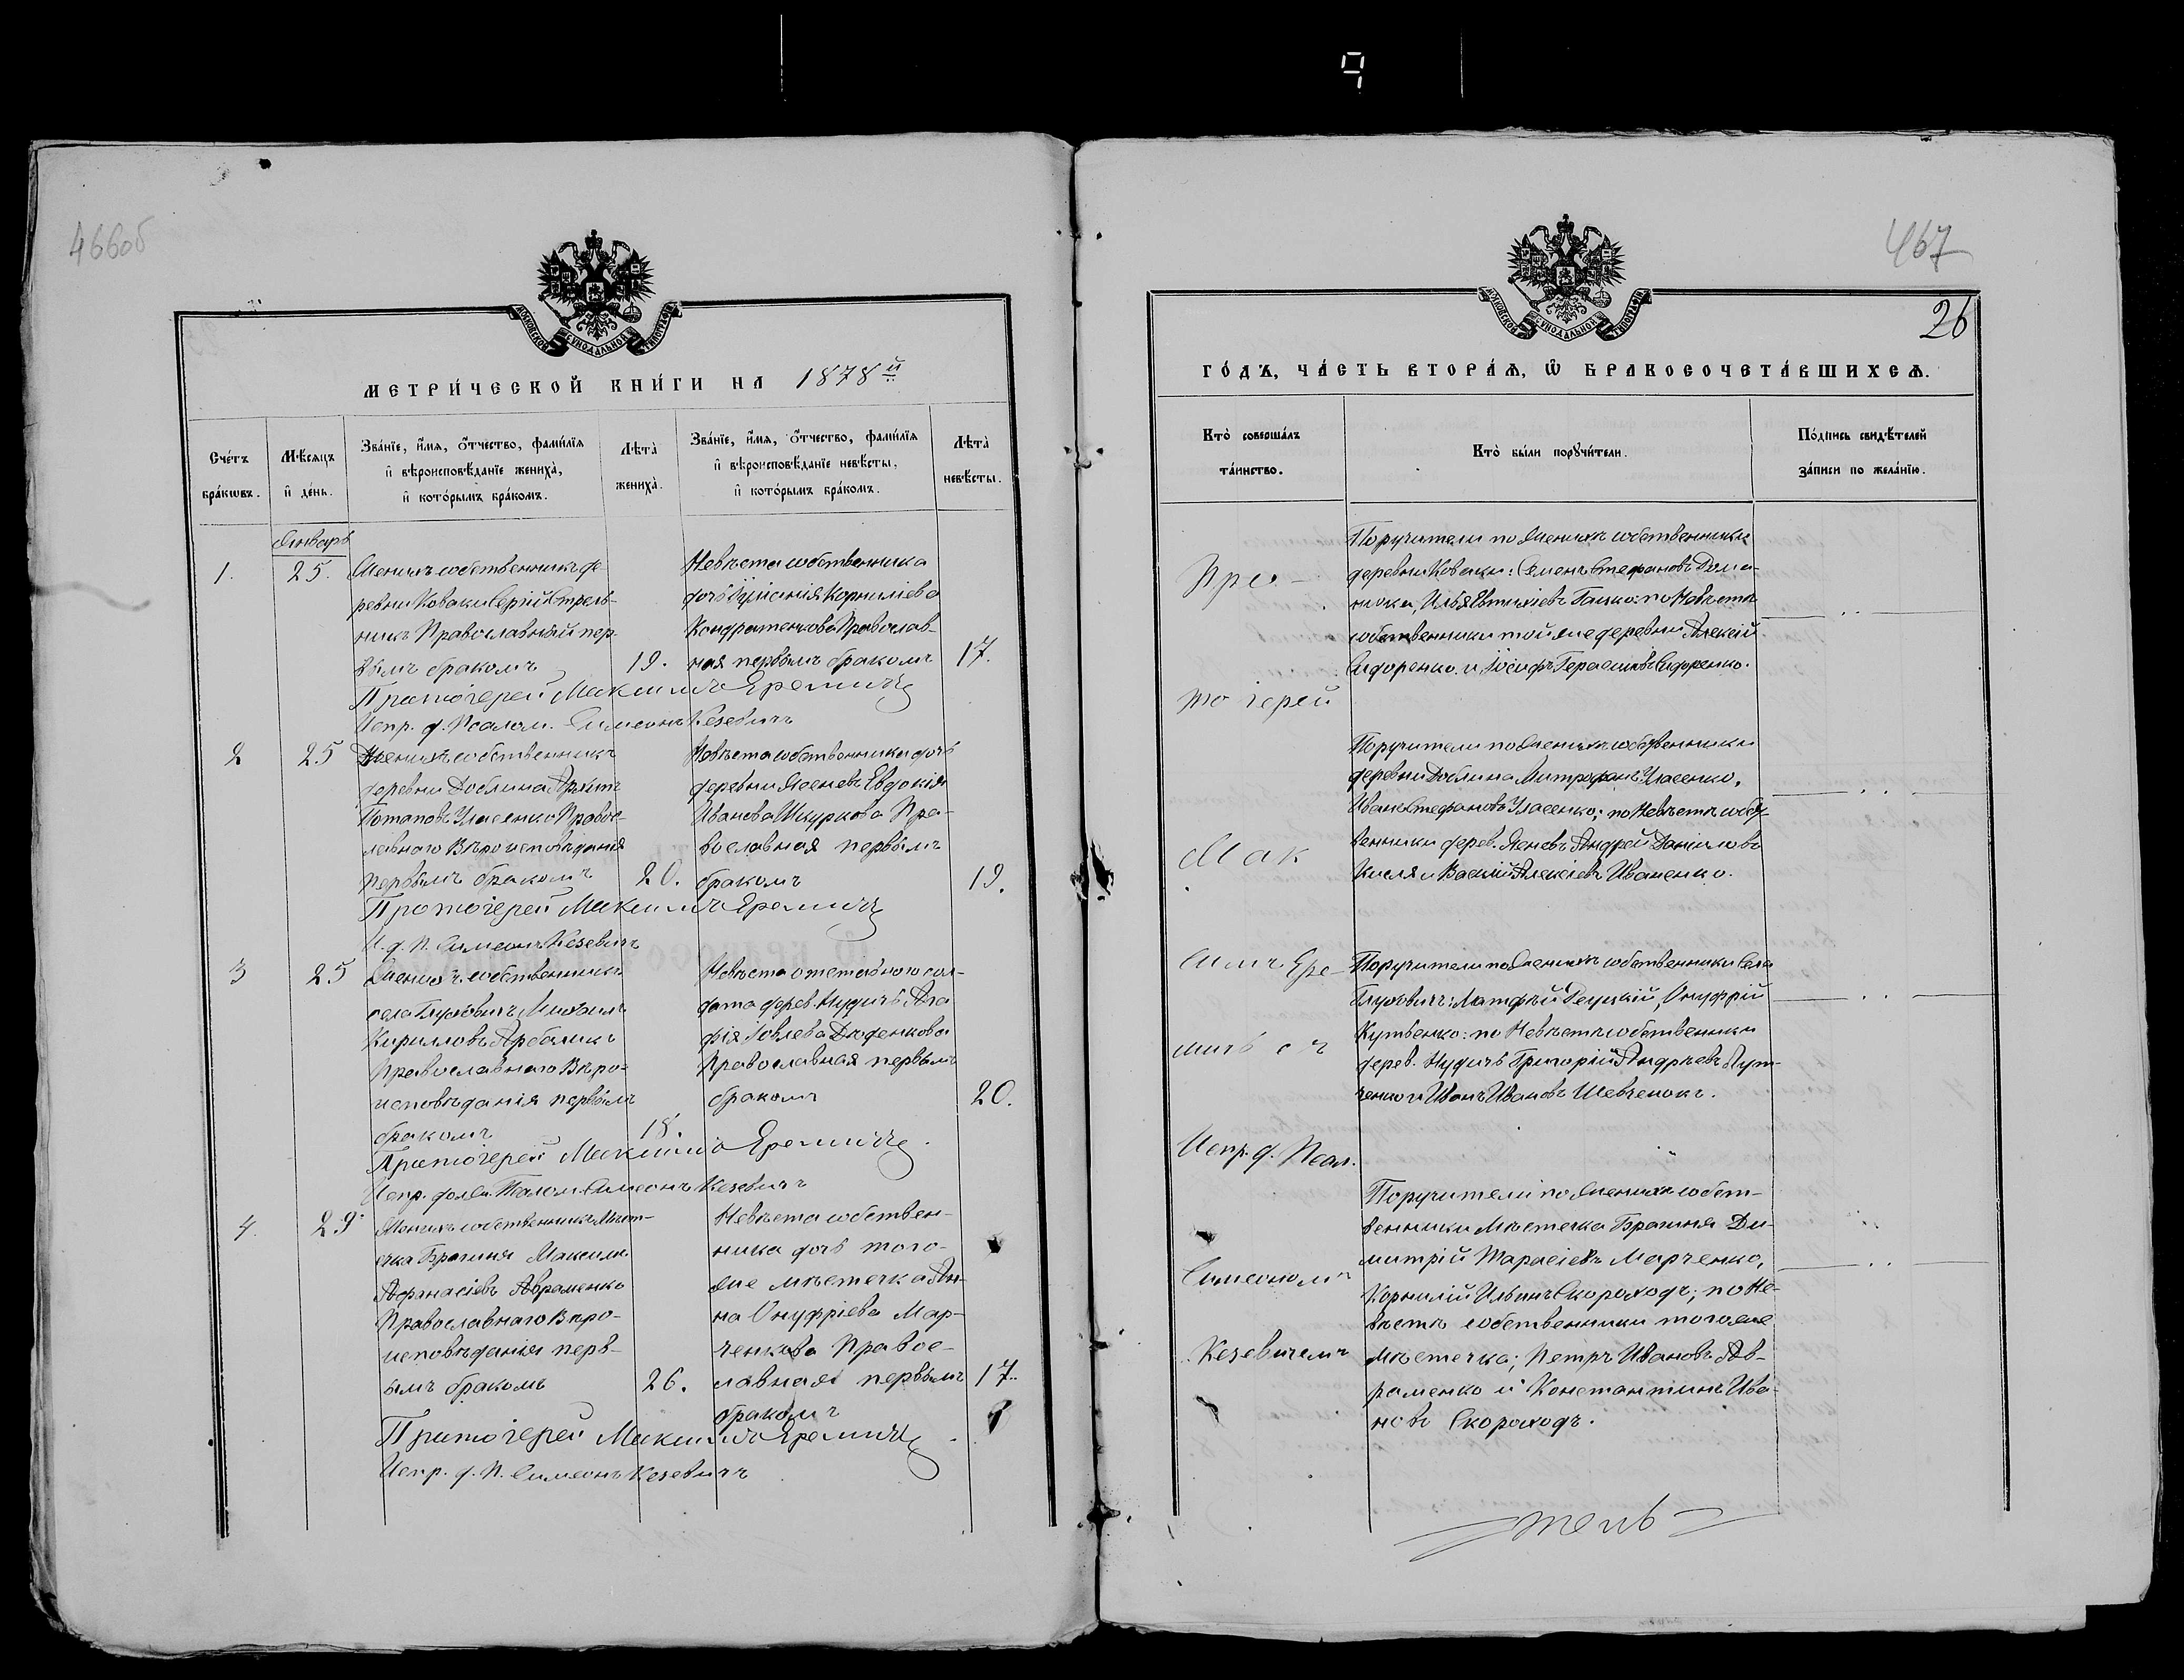 9
466об
467
26
МОСКОВСКОЙ СѴНОДАЛЬНОЙ ТИПОГРАФІИ
МЕТРИ́ЧЕСКОЙ КНИ́ГИ НА 1878й
Сче́тъ бра́кѡвъ.
Мѣ́сяцъ и҆ де́нь.
Зва́нїе, и҆́мя, ѻ҆́тчество, фами́лїя и҆ вѣроисповѣ́данїе жениха̀, и҆ кото́рымъ бра́комъ.
Лѣта̀ жениха̀.
Зва́нїе, и҆́мя, ѻ҆́тчество, фами́лїя и҆ вѣроисповѣ́данїе невѣ́сты, и҆ кото́рымъ бра́комъ.
Лѣта̀ невѣ́сты.
Январь
1.
25.
Женихъ собственникъ де
ревни Коваки Сергій Стрель-
никъ Православный пер
вымъ бракомъ
19.
Невѣста собственника
дочь Корниліева
Кондратенкова Православ-
ная первымъ бракомъ
17.
Протоіерей Максимъ Еремичъ
Испр. д. Псалом. Симеонъ Кезевичъ
2
25
Женихъ собственникъ
деревни Доблина
Потаповъ Уласенко Правос-
лавнаго Вѣроисповѣданія
первымъ бракомъ
20.
Невѣста собственника дочь
деревни Ясеневъ Евдокія
Иванова Шкуркова Пра-
вославная первымъ
бракомъ
19.
Протоіерей Максимъ Еремичъ
И. д. П. Симеонъ Кезевичъ
3
25
Женихъ собственникъ
села Глуховичъ Михаилъ
Кирилловъ Арбаликъ
Православнаго Вѣро-
исповѣданія первымъ
бракомъ
18.
Невѣста отставного сол-
дата дерев. Нудичь Ага
фія Іовлева Дюденкова
Православная первымъ
бракомъ
20.
Протоіерей Максимъ Еремичъ.
Испр. долж. Псалом. Симеонъ Кезевичъ
4.
29
Женихъ собственникъ Мѣст-
ечка Брагиня Максимъ
Афанасіевъ Авраменко
Православнаго Вѣро-
исповѣданія перв-
ымъ бракомъ
26.
Невѣста собствен-
ника дочь того-
же мѣстечка Ан-
на Онуфріева Мар-
ченкова Правос-
лавная первымъ
бракомъ
17.
Протоіерей Максимъ Еремичъ
Испр. д. П. Симеонъ Кезевичъ
МОСКОВСКОЙ СѴНОДАЛЬНОЙ ТИПОГРАФІИ
ГО́ДЪ, ЧА́СТЬ ВТОРА́Я, Ѽ БРАКОСОЧЕТА́ВШИХСЯ.
Кто̀ соверша́лъ та́инство.
Кто̀ бы́ли порꙋчи́тели.
По́дпись свидѣ́телей за́писи по жела́нїю.
Про-
то іерей
Мак
симъ Ере-
мичь съ
Испр. д. Псал.
Симеономъ
Кезевичемъ
Поручители по Женихѣ собственники
деревни Коваки: Семенъ Стефановъ Дома-
нюка, Илья Евтихіевъ Гацко: по Невѣстѣ
собственники той же деревни Алексій
Сидоренко и Іосифъ Герасимовъ Сидоренко.
Поручители по Женихѣ собственники
деревни Доблина Митрофанъ Уласенко,
Иванъ Стефановъ Уласенко; по Невѣстѣ собст-
венники дерев. Ясеневъ Андрей Даниловъ
Кисля и Василій Алексіевъ Иваненко.
Поручители по Женихѣ собственники Села
Глуховичъ: Матфѣй Реуцкій, Онуфрій
Кутвенко: по Невѣстѣ собственники
дерев. Нудичь Григорій Андреевъ Лут-
ченко и Иванъ Ивановъ Шевченокъ.
Поручители по Женихѣ собст-
венники Мѣстечка Брагиня Ди-
митрій Тарасіевъ Марченко,
Корнилій Ильинъ Скороходъ; по Не-
вѣстѣ собственники того же
мѣстечка; Петръ Ивановъ Ав-
раменко и Константинъ Ива-
новъ Скороходъ.